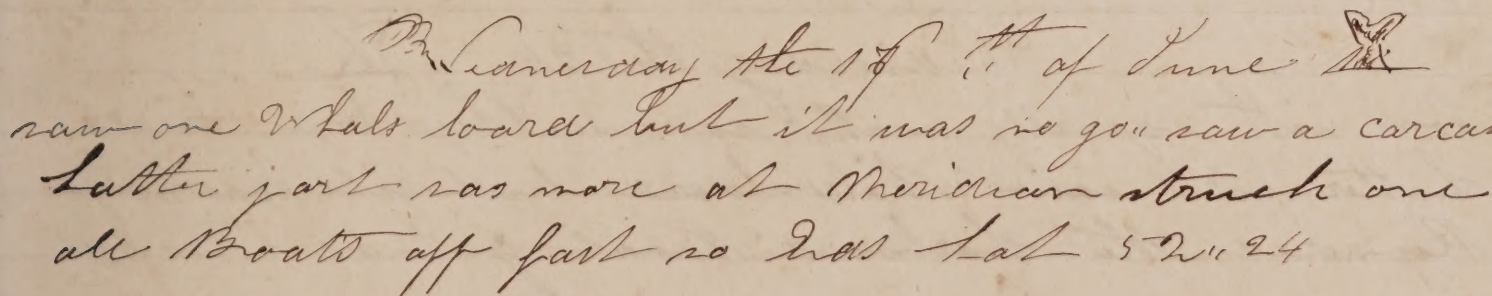 Wednesday the 17 th of June
saw one Whals loard but it was no go" saw a carcas
Latter part sas more at Meridian struck one
all Boats off fast so Ends Lat 52" 24